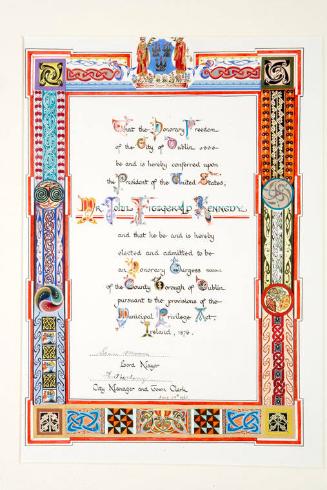 That the Honorary Freedom
of the City of Dublin
be and is hereby conferred upon
the President of the United States,
Mr. John Fitzgerald Kennedy
and that he be and is hereby
elected and admitted to be
an Honorary Burgess
of the County Borough of Dublin
pursuant to the provisions of the
Municipal Privilege Act,
Ireland, 1876.
Lord Mayor
City Manager and Town Clerk